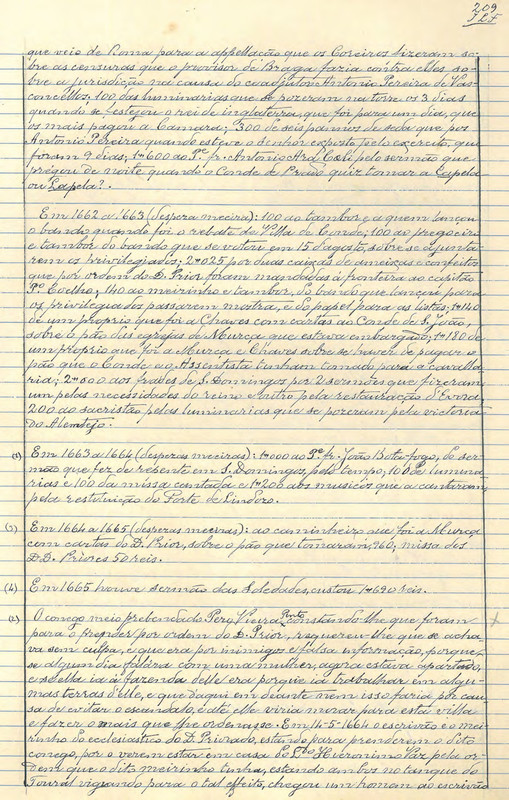 209
que veio de Roma para a appellação que os Coreiros fizeram so-
bre as censuras que o provisor de Braga fazia contra elles so-
bre a jurisdição na causa do coadjutor Antonio Pereira de Vas-
concellos; 100 das luminarias que se pozeram na torre os 3 dias
quando se festejou o rei de inglaterra, que foi para um dia, que
os mais pagou a Camara; 300 de seis pannos de seda que pos
Antonio Pereira quando esteve o Senhor exposto pelo exercito, que
foram 9 dias; 1$600 ao Pe. fr. Antonio Ara Cœli pelo sermão que
prégou de noite quando o Conde de Prado quiz tomar a Capela
ou Lapela?.
Em 1662 a 1663 (despera meceira): 100 ao tambor e a quem lançou
o bando quando foi o rebate de Villa do Conde; 100 ao pregoeiro
e tambor do bando que se votou em 15 d'agosto, sobre se ajunta-
rem os privilegiados; 2$025 por duas caixas de ameixas e confeitos
que por ordem do D. Prior foram mandadas á fronteira ao capitão
Po. Coelho; 140 ao meirinho e tambor, do bando que lançou para
os privilegiados passarem mostra, e do papel para as listas; 1$140
de um proprio que foi a Chaves com cartas ao Conde de S. João,
sobre o pão das egrejas de Murça que estava embargado; 1$180 de
um proprio que foi a Murça e Chaves sobre se haver de pagar o
pão que o Conde e o Assentista tinham tomado para a cavalla-
ria; 2$000 aos frades de S. Domingos por 2 sermões que fizeram
um pelas necessidades do reino e outro pela restauração d'Evora;
200 ao sacristão pelas luminarias que se pozeram pela victoria
do Alemtejo.
Em 1663 a 1664 (desperas meceiras): 1$000 ao Pe. fr. João Botafogo, do ser-
mão que fez de repente em S. Domingos, pelo tempo; 100 de lumina-
rias e 100 da missa cantada e 1$200 aos musicos que a cantaram
pela restituição do Forte de Lindozo.
(3) Em 1664 a 1665 (desperas meceiras): ao caminheiro que foi a Murça
com cartas do D. Prior, sobre o pão que tomaram, 960; missa dos
DD. Priores 50 reis.
(4) Em 1665 houve sermão das Soledades, custou 1$690 reis.
O conego meio prebendado Pero Vieira Pinto constando-lhe que foram
para o prender por ordem do D. Prior, requereu-lhe que se acha-
va sem culpa, e que era por inimigos e falsa informação, porque,
se algum dia falára com uma mulher, agora estava apartado,
e se ella ia á fazenda delle era porque ia trabalhar em algu-
mas terras d'elle, e que d'aqui em deante nem isso faria por cau-
sa de evitar o escandalo, e até elle viria morar para esta villa
e fazer o mais que lhe ordenasse. Em 14-5-1664 o escrivão e o mei-
rinho do ecclesiastico do D. Priorado, estando para prenderem o dito
conego, por o verem estar em casa do Ldo. Hieronimo Vaz pela or-
dem que o dito meirinho tinha, estando ambos no tanque do
Toural vigiando para o tal effeito, chegou um homem ao escrivão